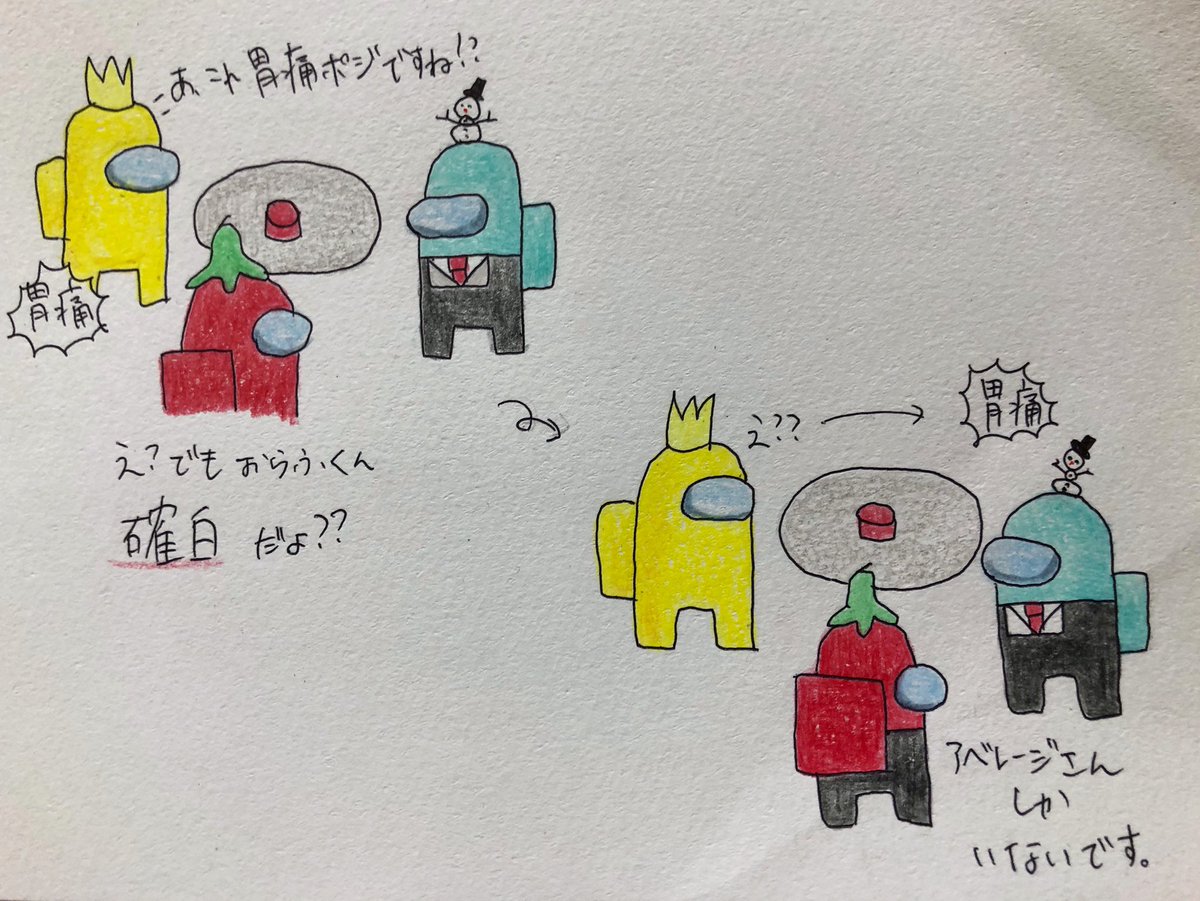 あ、これ胃痛ポジですね!?
胃痛
え?でもおらふくん
確白だよ??
え??
胃痛
アベレージさん
しか
いないです。